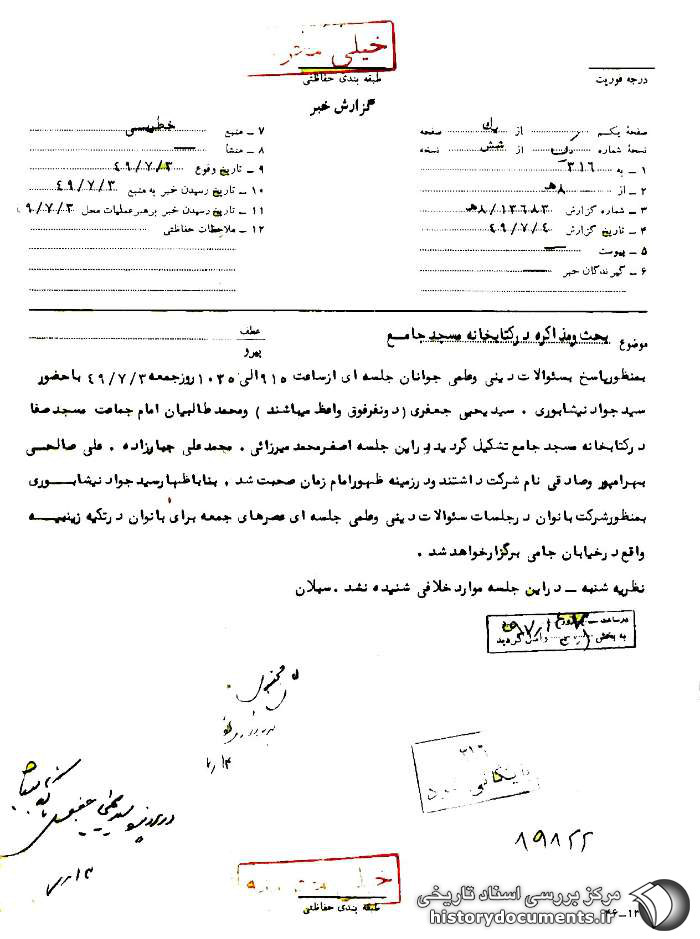 خیلی محرمانه
طبقه بندی حفاظتی
درجه فوریت
گزارش خبر
صفحهٔ یکم از یک صفحه
نسخهٔ شماره از شش نسخه
۱ ـ به ۳۱۶
۲ ـ از ۸هـ
۳ ـ شماره گزارش ۸/۱۳۶۸۳هـ
۴ ـ تاریخ گزارش ۴۹/۷/۴
۵ ـ پیوست
۶ ـ گیرندگان خبر
۷ ـ منبع
۸ ـ منشأ
۹ ـ تاریخ وقوع ۴۹/۷/۳
۱۰ ـ تاریخ رسیدن خبر به منبع ۴۹/۷/۳
۱۱ ـ تاریخ رسیدن خبر برهبر عملیات محل ۹/۷/۳
۱۲ ـ ملاحظات حفاظتی
موضوع بحث ومذاکره درکتابخانه مسجد جامع
عطف
پیرو
بمنظورپاسخ بسئوالات دینی وعلمی جوانان جلسه ای ازساعت ۹۱۵الی ۱۰۳۵روزجمعه ۴۹/۷/۳ باحضور
سید جواد نیشابوری . سید یحیی جعفری (دونفرفوق واعظ میباشند ) ومحمد طالبیان امام جماعت مسجد صفا
درکتابخانه مسجد جامع تشکیل گردید دراین جلسه اصغرمحمد میرزائی . محمدعلی جبارزاده . علی صالحی
بهرامپور وصادقی نام شرکت داشتند ودرزمینه ظهورامام زمان صحبت شد . بناباظهارسید جواد نیشابوری
بمنظورشرکت بانوان درجلسات سئوالات دینی وعلمی جلسه ای عصرهای جمعه برای بانوان درتکیه زینبیه
واقع درخیابان جامی برگزارخواهد شد .
نظریه شنبه ـ دراین جلسه موارد خلافی شنیده نشد . سبلان
در ساعت
به بخش واصل گردید
۳۱۶
بایگانی شود
۸۹۸۲۲
خیلی محرمانه
طبقه بندی حفاظتی
مرکز بررسی اسناد تاریخی
historydocuments.ir